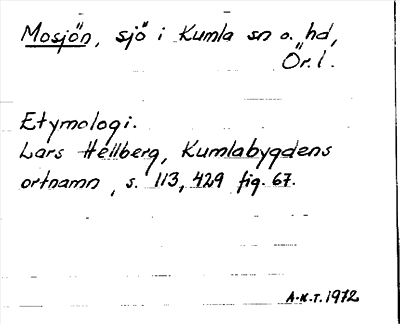 Mosjön, sjö i Kumla sn o. hd,
Ör. l.
Etymologi.
Lars Hellberg, Kumlabygdens
ortnamn, s. 113, 429 fig. 67.
A.K.T. 1972